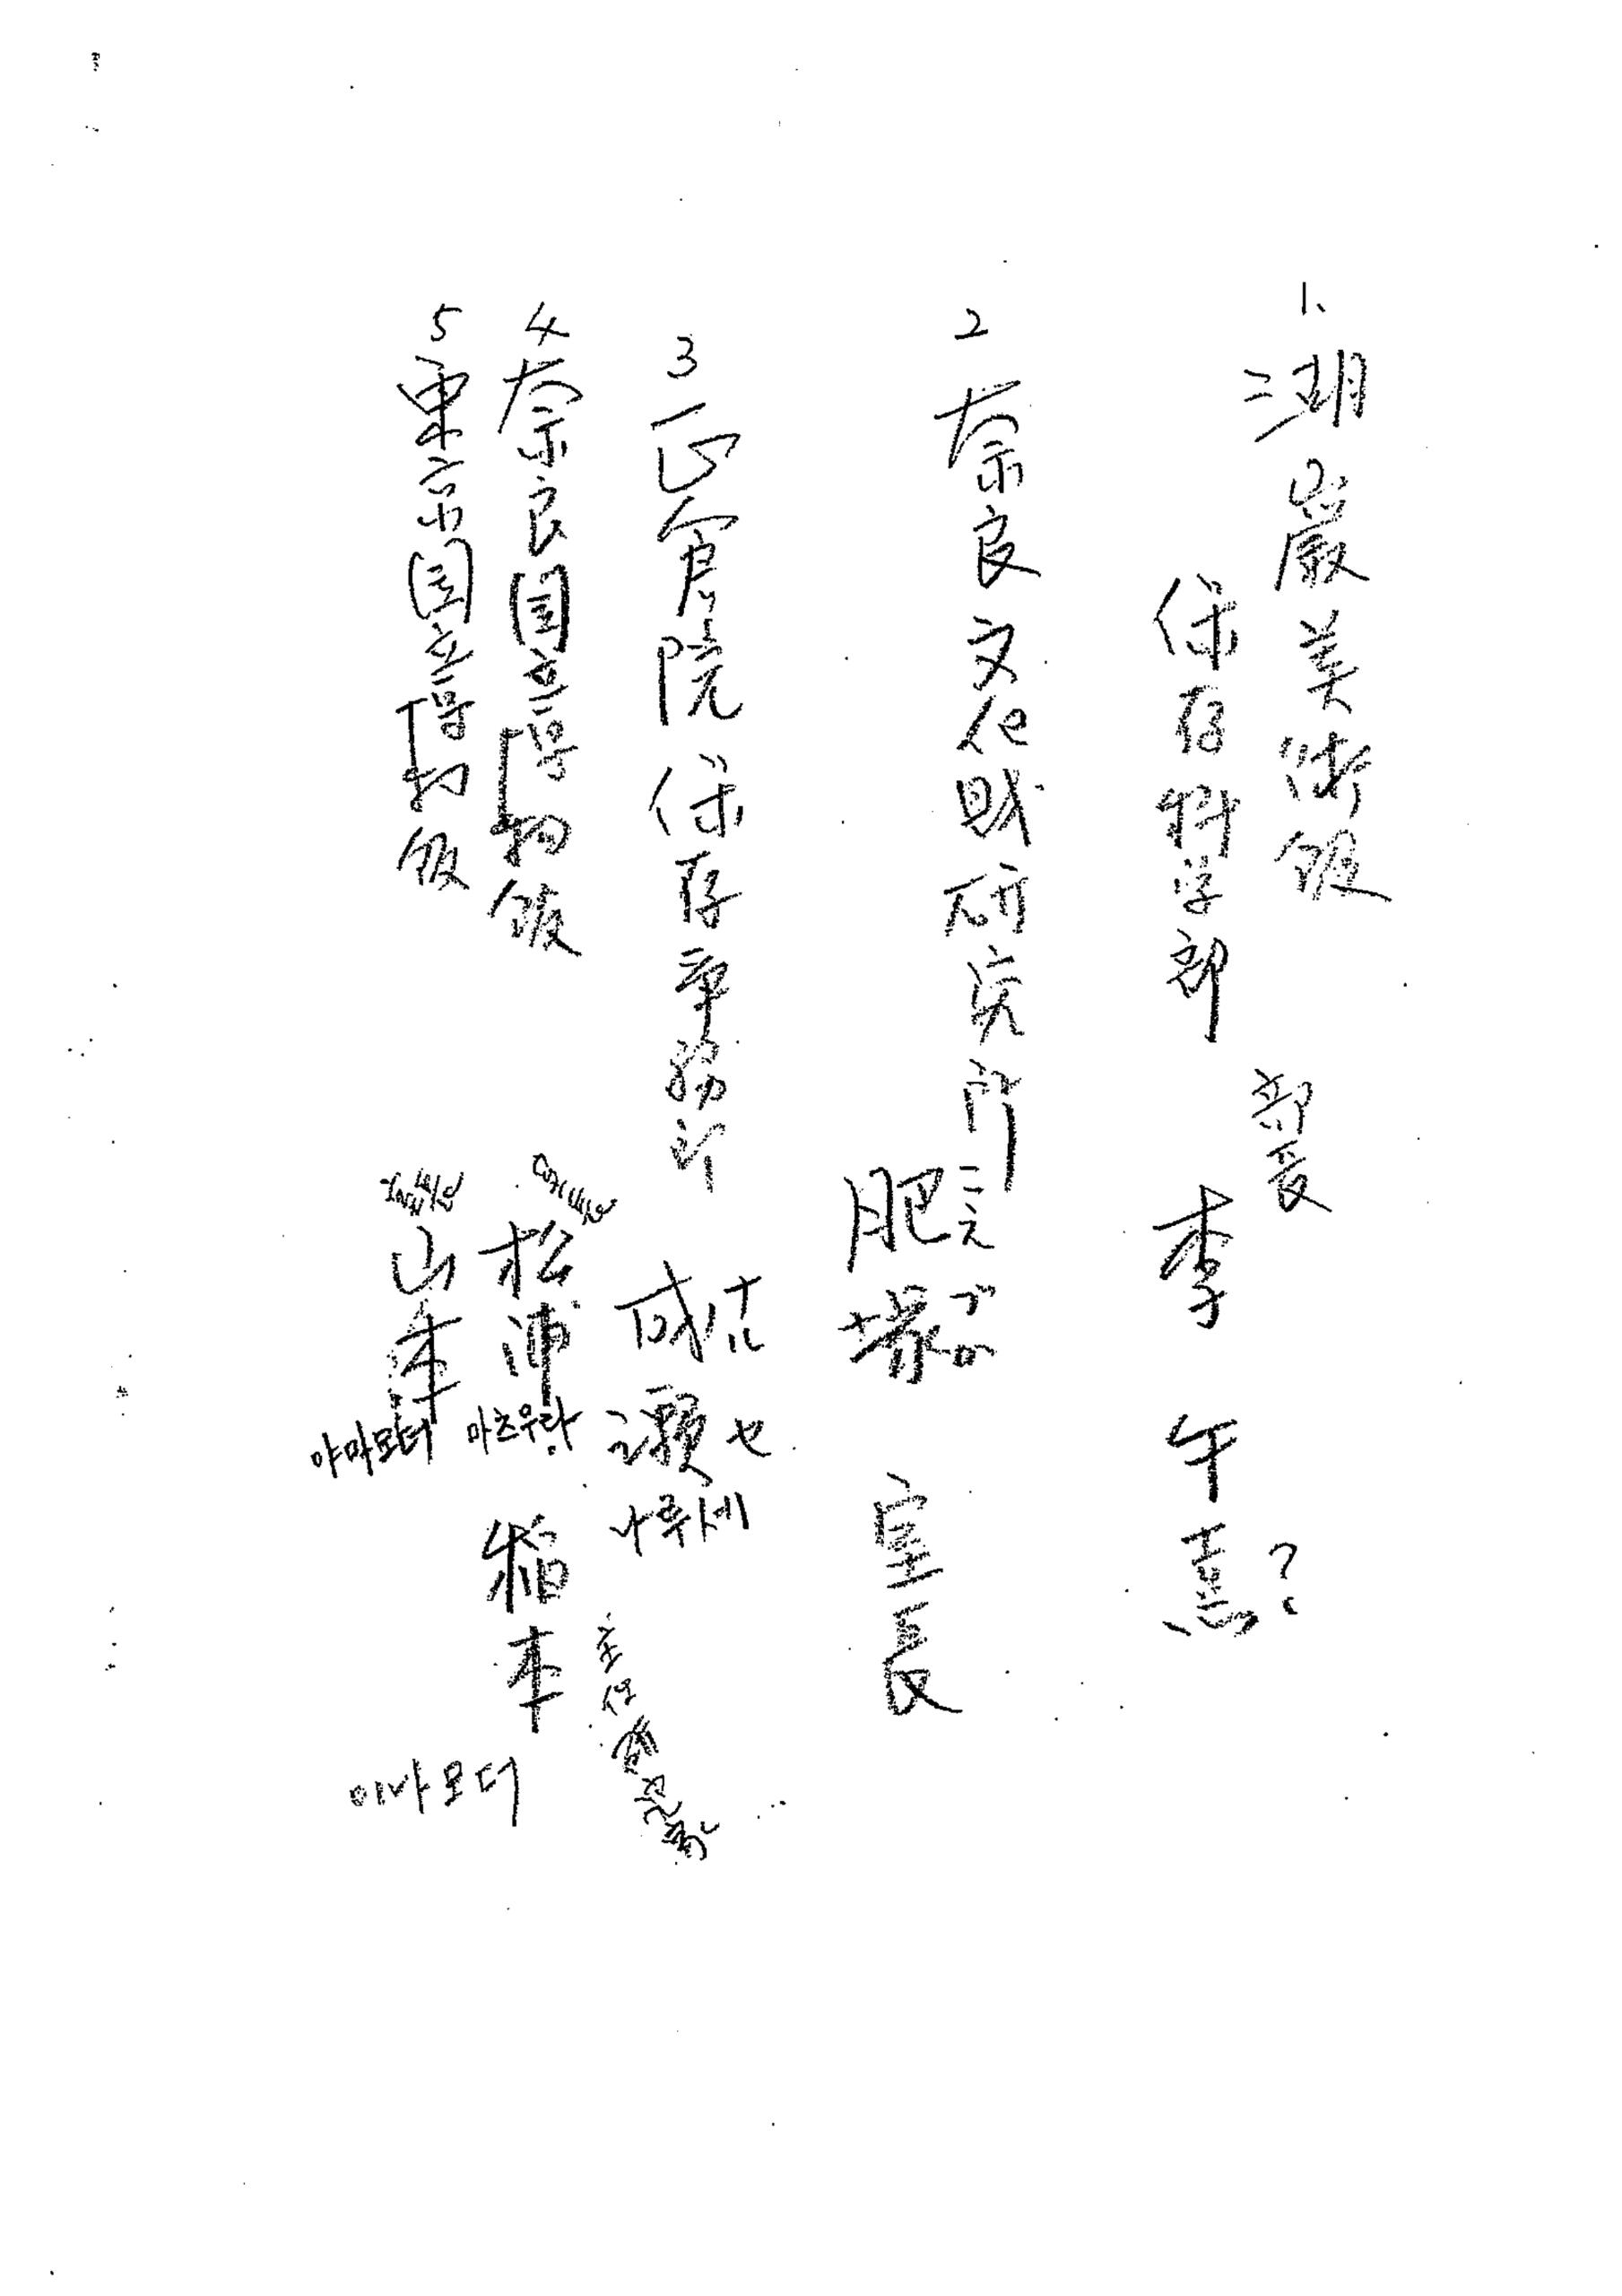 1、湖巖美術館
保存科学部
部長
李午熹?
2 奈良文化財研究所
肥塚 室長
こえづか
3 正倉院保存事務所
成瀬
ナル セ
나루세
4 奈良国立博物館
松浦
마츠우라
稲本
이나모더
主任研究官
5 東京国立博物館
山本
야마모더